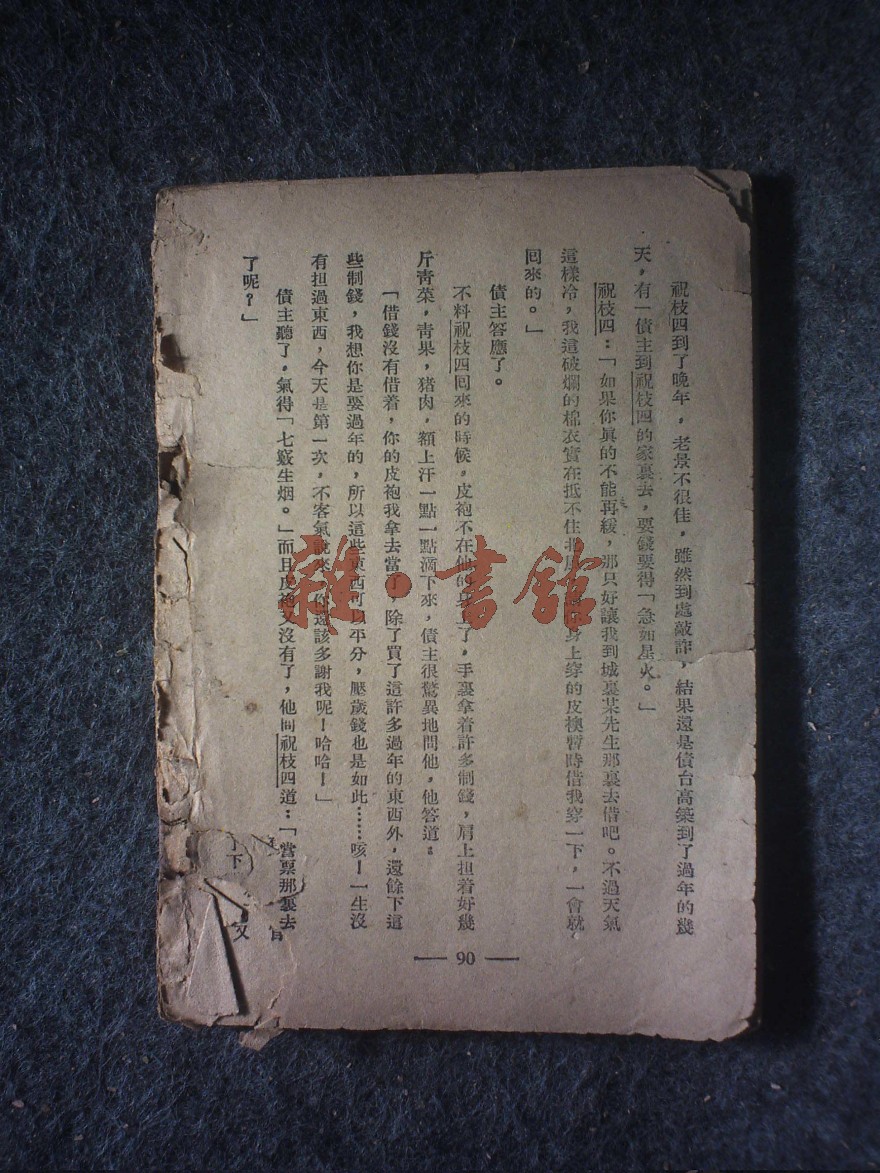 祝枝四到了晚年，老景不很佳，雖然到處敲詐，結果還是債台高築到了過年的幾
天，有一債主到祝枝四的家裏去，要錢要得「急如星火。」
祝枝四：「如果你眞的不能再緩，那只好讓我到城裏某先生那裏去借吧。不過天氣
這樣冷，我這破爛的棉衣實在抵不住北風，身上穿的皮襖暫時借我穿一下，一會就
回來的。」
債主答應了。
不料祝枝四回來的時候，皮袍不在他的身上了，手裏拿着許多制錢，肩上担着好幾
斤靑菜，靑果，猪肉，額上汗一點一點滴下來，債主很驚異地問他，他答道：
「借錢沒有借着，你的皮袍我拿去當了，除了買了這許多過年的東西外，還餘下這
些制錢，我想你是要過年的，所以這些東西可以平分，壓歲錢也是如此……咳！一生沒
有担過東西，今天是第一次，不客氣說來，你還該多謝我呢！哈哈！」
債主聽了，氣得「七竅生烟。」而且皮袍又沒有了，他問祝枝四道：「當票那裏去
了呢？」
90
雜·書館